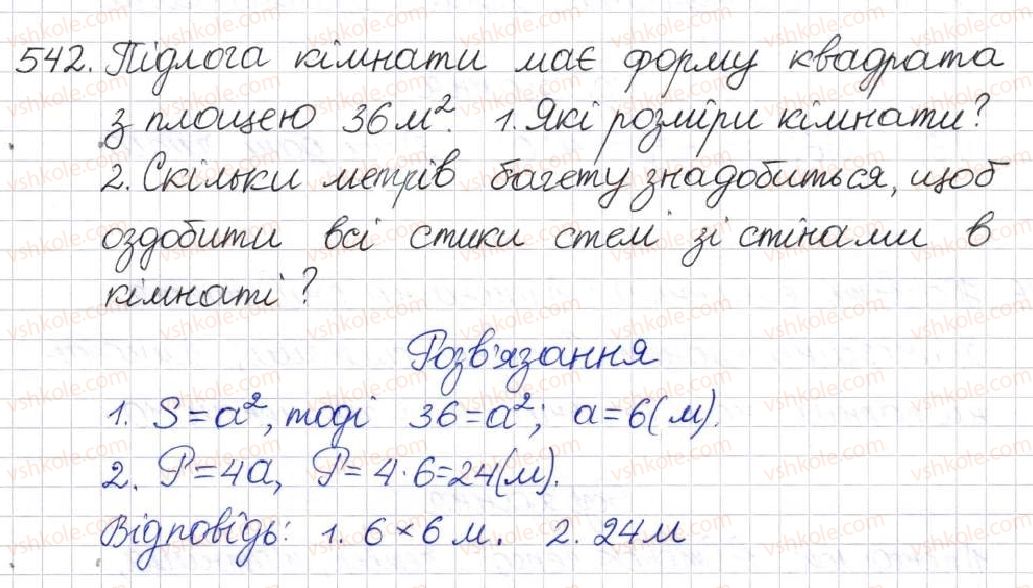 542. Підлога кімнати має форму квадрата
з площею 36 м². 1. Які розміри кімнати?
2. Скільки метрів багету знадобиться, щоб
оздобити всі стики стелі зі стінами в
кімнаті?
Розв'язання
1. S = a², тоді 36 = a²; a = 6 (м).
2. P = 4a, P = 4 · 6 = 24 (м).
Відповідь: 1. 6 × 6 м. 2. 24 м